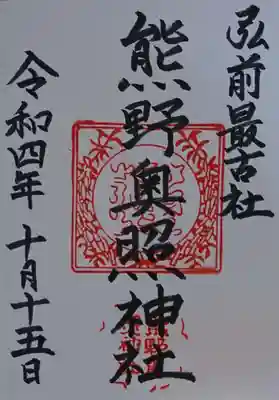 弘前最古社
熊野奥照神社
令和四年 十月十五日